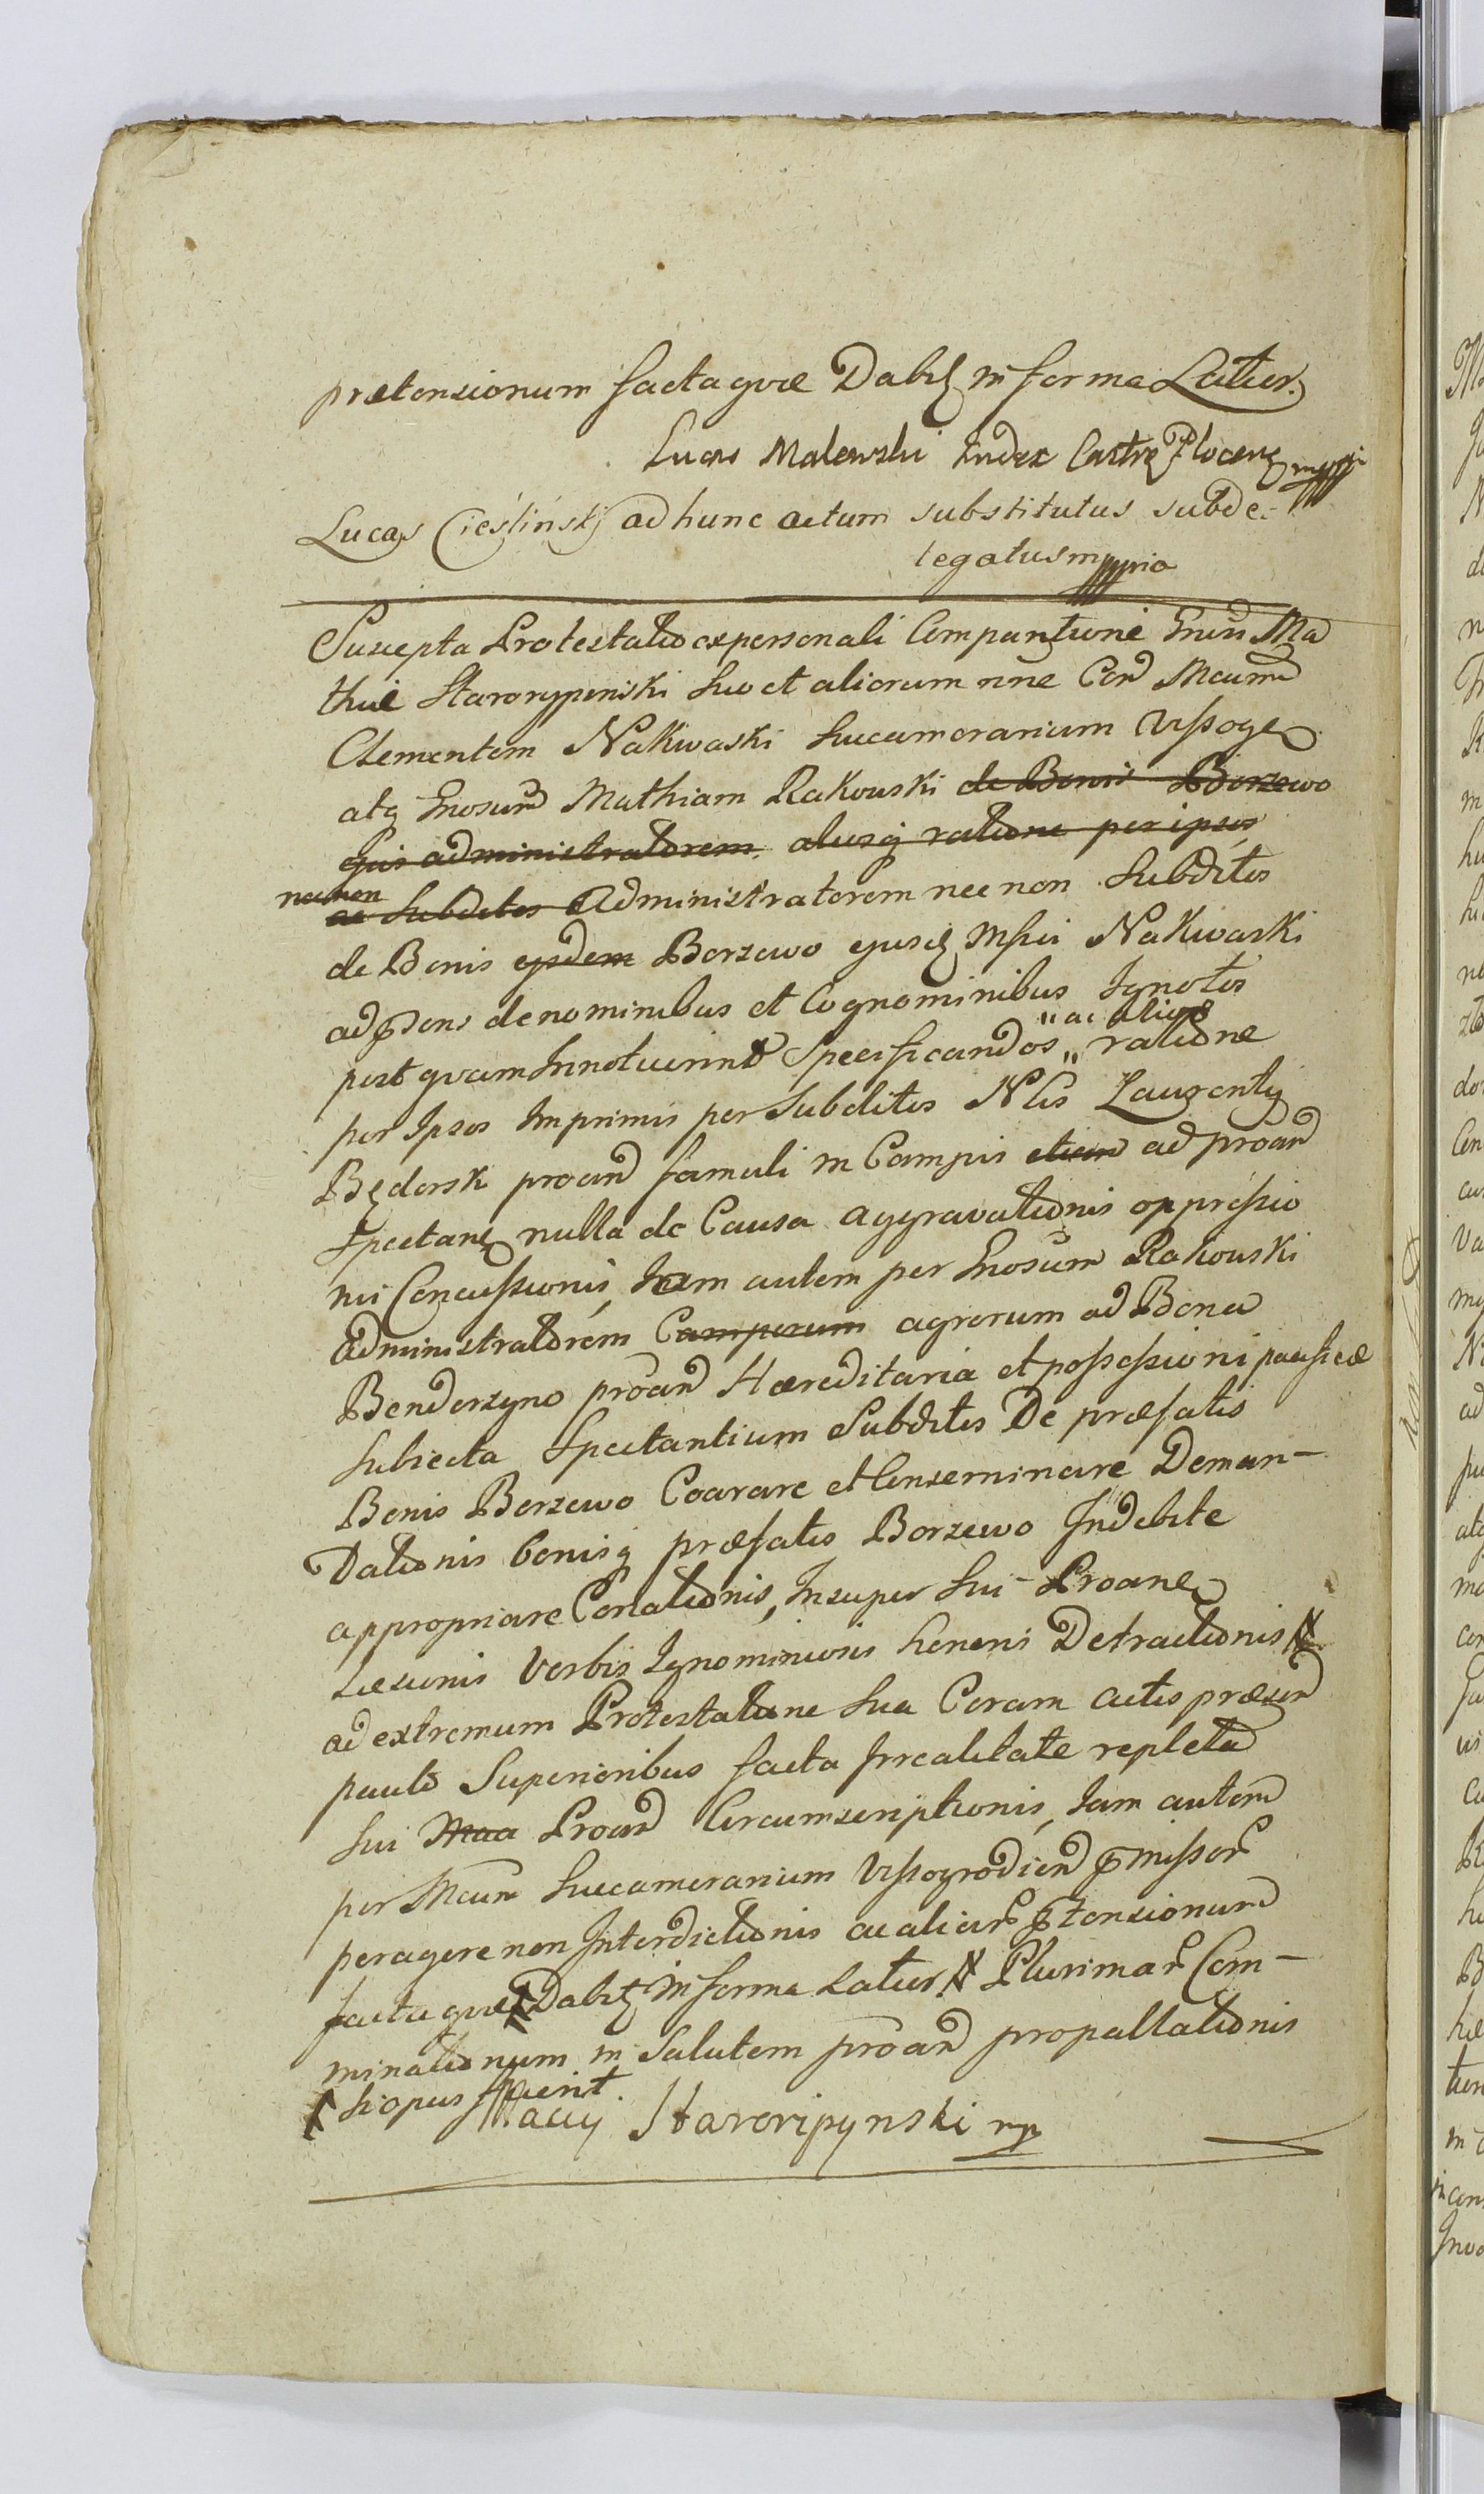 prætensionum facta quæ Dabit in forma Latior.
Lucas Malewski Iudex Castren Plocens mppria
Lucas Cieśliński ad hunc actum substitutus subde-
legatus mppria
Suscepta Protestatio ex personali Comparitione Gnsi Ma
thiæ Starorypinski suo et aliorum nne Con Mcum
Clementem Nakwaski Succamerarium Vissogr
atq Gnosum Mathiam Rakowski de Bonis Borzewo
ejus administratorem aliusq ratione per ipsos
nec non
ac Subditos Administratorem nec non Subditos
de Bonis ejusdem Borzewo ejusd Msci Nakwaski
ad pdens de nominibus et Cognominibus Ignotos
" ac alios
post quam Innotuerint Specificandos " ratione
per Ipsos Imprimis per Subditos Nlis Laurentij
Będorsk proan famuli in Campis etiam ad proan
Spectan nulla de Causa aggravationis oppressio
nis Concussionis, Iam autem per Gnosum Rakowski
Administratorem Camporum agrorum ad Bona
Bendorzyno proan Hæreditaria et possessioni pacificæ
Subiecta Spectantium Subditis De præfatis
Bonis Borzewo Coarare et Conseminare Deman-
Dationis bonisq præfatis Borzewo Indebite
appropriare Conationis, Insuper Sui Proanes
Læsionis Verbis Ignominiosis honoris Detractionis
ad extremum Protestatione Sua Coram Actis præsen
paulo Superioribus facta Irrealitate repleta
sui Proan Circumscriptionis, Iam autem
per Mcum Succamerarium Vissogrodien pmissor
peragere non Interdictionis ac alior ptensionum
facta quæ Dabit in forma Latior Plurimar Com-
minationum in Salutem proan propallationis
si opus fuerit.
Maciej Staroripynski mp